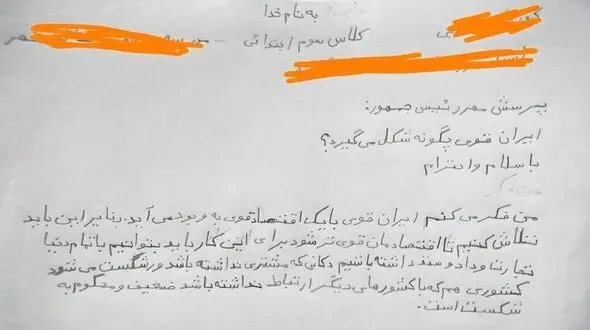 به نام خدا
کلاس سوم ابتدائی -
پرسش مهر رئیس جمهور:
ایران قوی چگونه شکل می‌گیرد؟
با سلام و احترام
من فکر
من فکر می کنم ایران قوی با یک اقتصاد قوی به وجود می آید. بنابراین باید
تلاش کنیم تا اقتصادمان قوی تر شود برای این کار باید بتوانیم با تمام دنیا
تجارت و داد و ستد داشته باشیم دکانی که مشتری نداشته باشد ورشکست می شود
کشوری هم که با کشورهای دیگر ارتباط نداشته باشد ضعیف و محکوم به
شکست است.